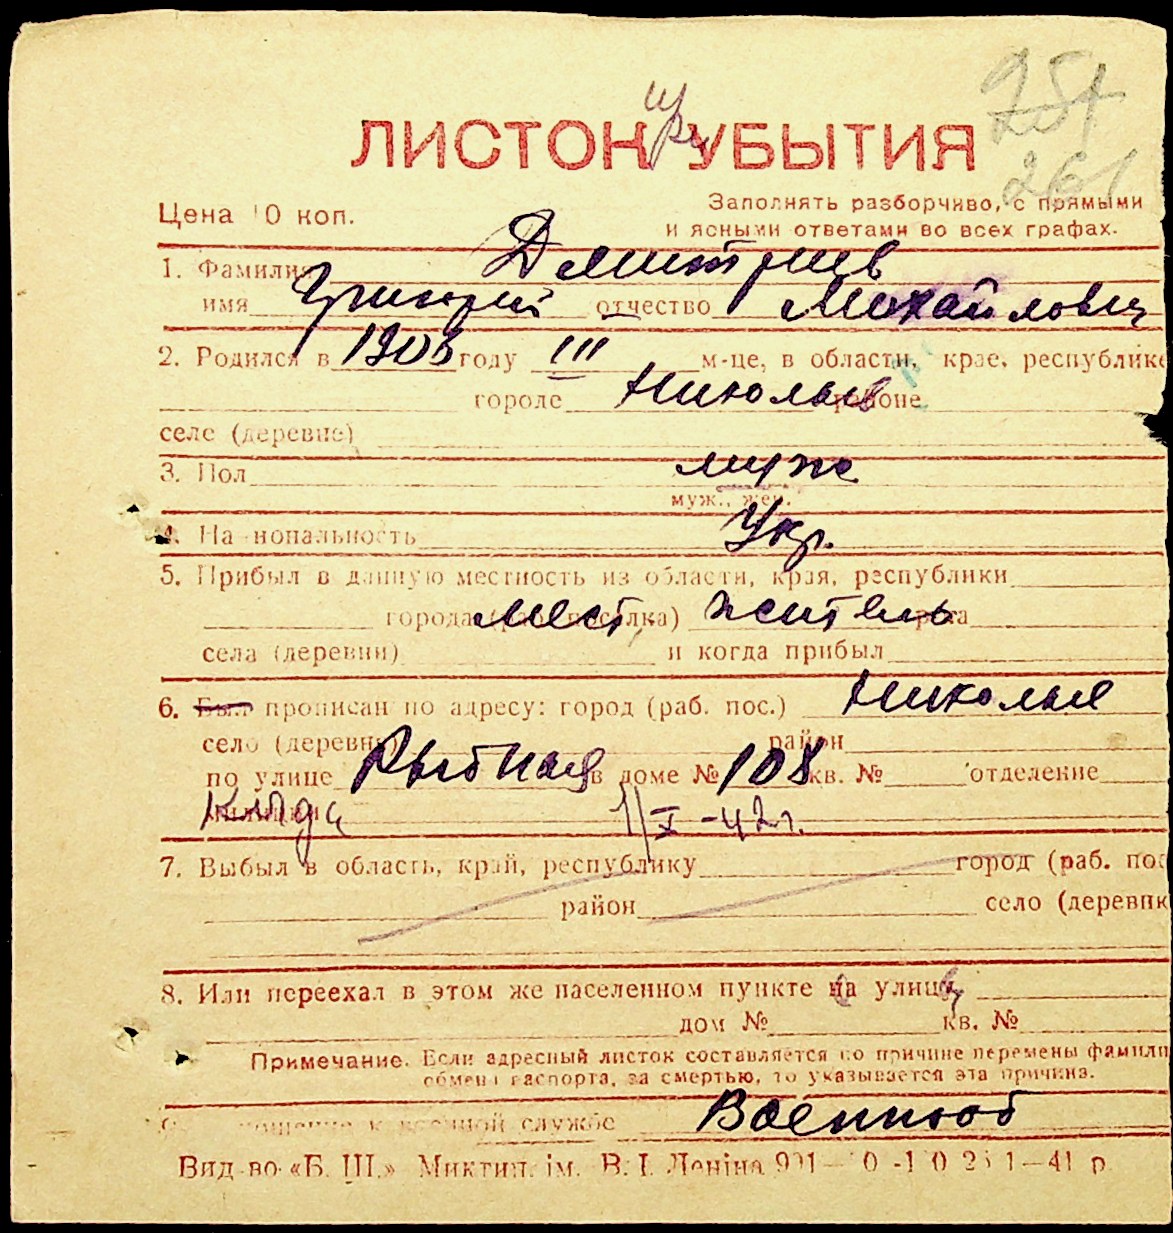 251
261
ЛИСТОК УБЫТИЯ
при
Цена 10 коп.
Заполнять разборчиво, с прямыми
и ясными ответами во всех графах.
1. Фамилия Дмитриев
имя Григорий отчество Михайлович
2. Родился в 1903 году III м-це, в области, крае, республике
городе Николаев районе
селе (деревне)
3. Пол муж
муж., жен.
4. Национальность Укр.
5. Прибыл в данную местность из области, края, республики
города мест. житель
села (деревни) и когда прибыл
6. Был прописан по адресу: город (раб. пос.) Николаев
село (деревня) район
по улице Рыбная в доме № 108 кв. № отделение
1/X-42г.
7. Выбыл в область, край, республику город (раб. пос
район село (деревня
8. Или переехал в этом же населенном пункте на улицу
дом № кв. №
Примечание. Если адресный листок составляется по причине перемены фамили
обмена паспорта, за смертью, то указывается эта причина.
военной службе Военнооб
Вид-во «Б. Ш.» Миктип. ім. В. І. Леніна